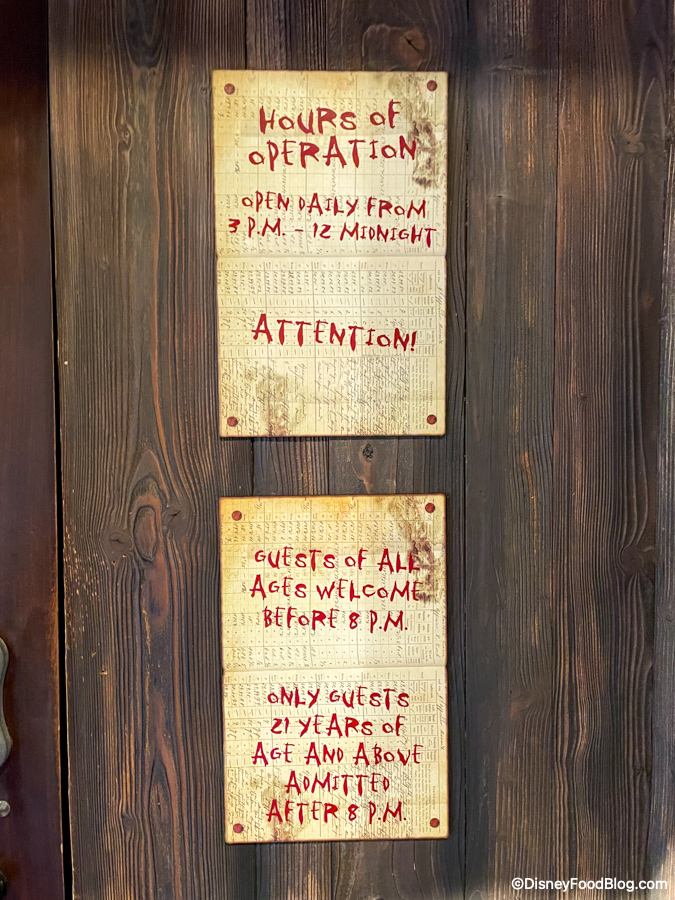 HOURS OF
OPERATION
OPEN DAILY FROM
3 P.M. – 12 MIDNIGHT
ATTENTION!
GUESTS OF ALL
AGES WELCOME
BEFORE 8 P.M.
ONLY GUESTS
21 YEARS OF
AGE AND ABOVE
ADMITTED
AFTER 8 P.M.
©DisneyFoodBlog.com